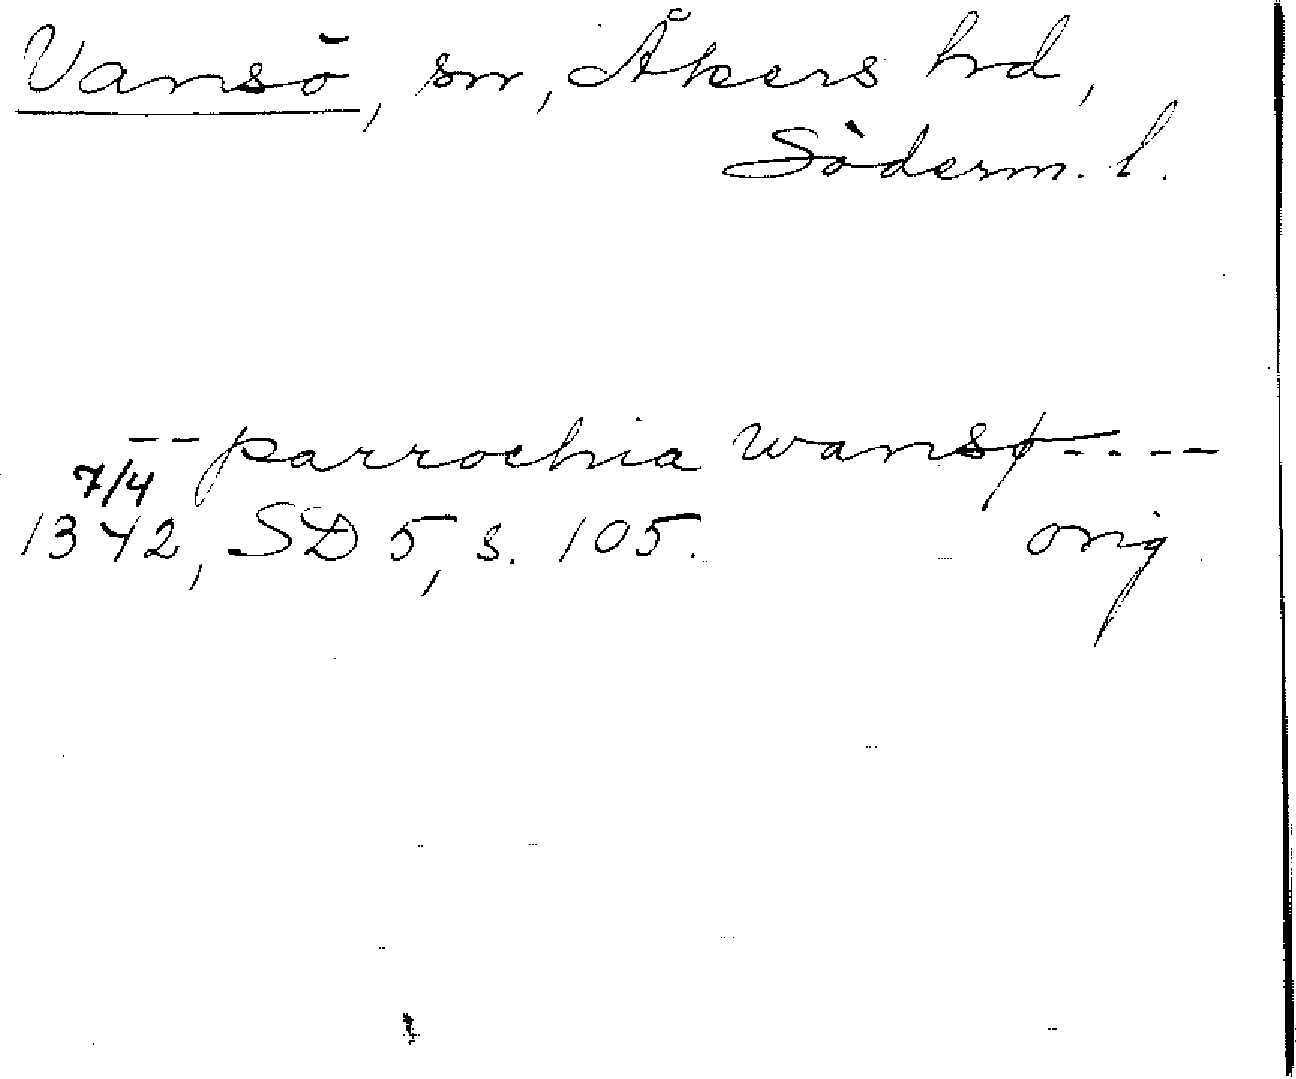 Vansö, sn, Åkers hrd,
Söderm. l.
-- parrochia wansø ----
7/4
1342, SD 5, s. 105. orig